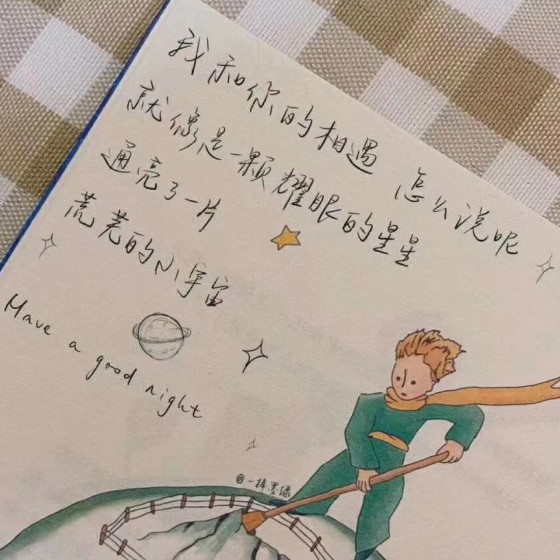 我和你的相遇 怎么说呢
就像是一颗耀眼的星星
通亮了一片
荒芜的小宇宙
Have a good night
@一捧墨绿